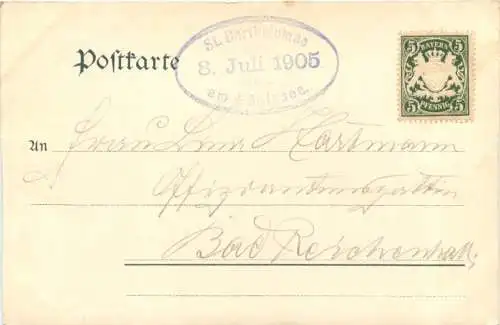 St. Bartholomae
8. Juli 1905
am Königssee.
Postkarte
BAYERN
5 5
5 PFENNIG 5
An Frau Lina Hartmann
Offiziantensgattin
Bad Reichenhall.